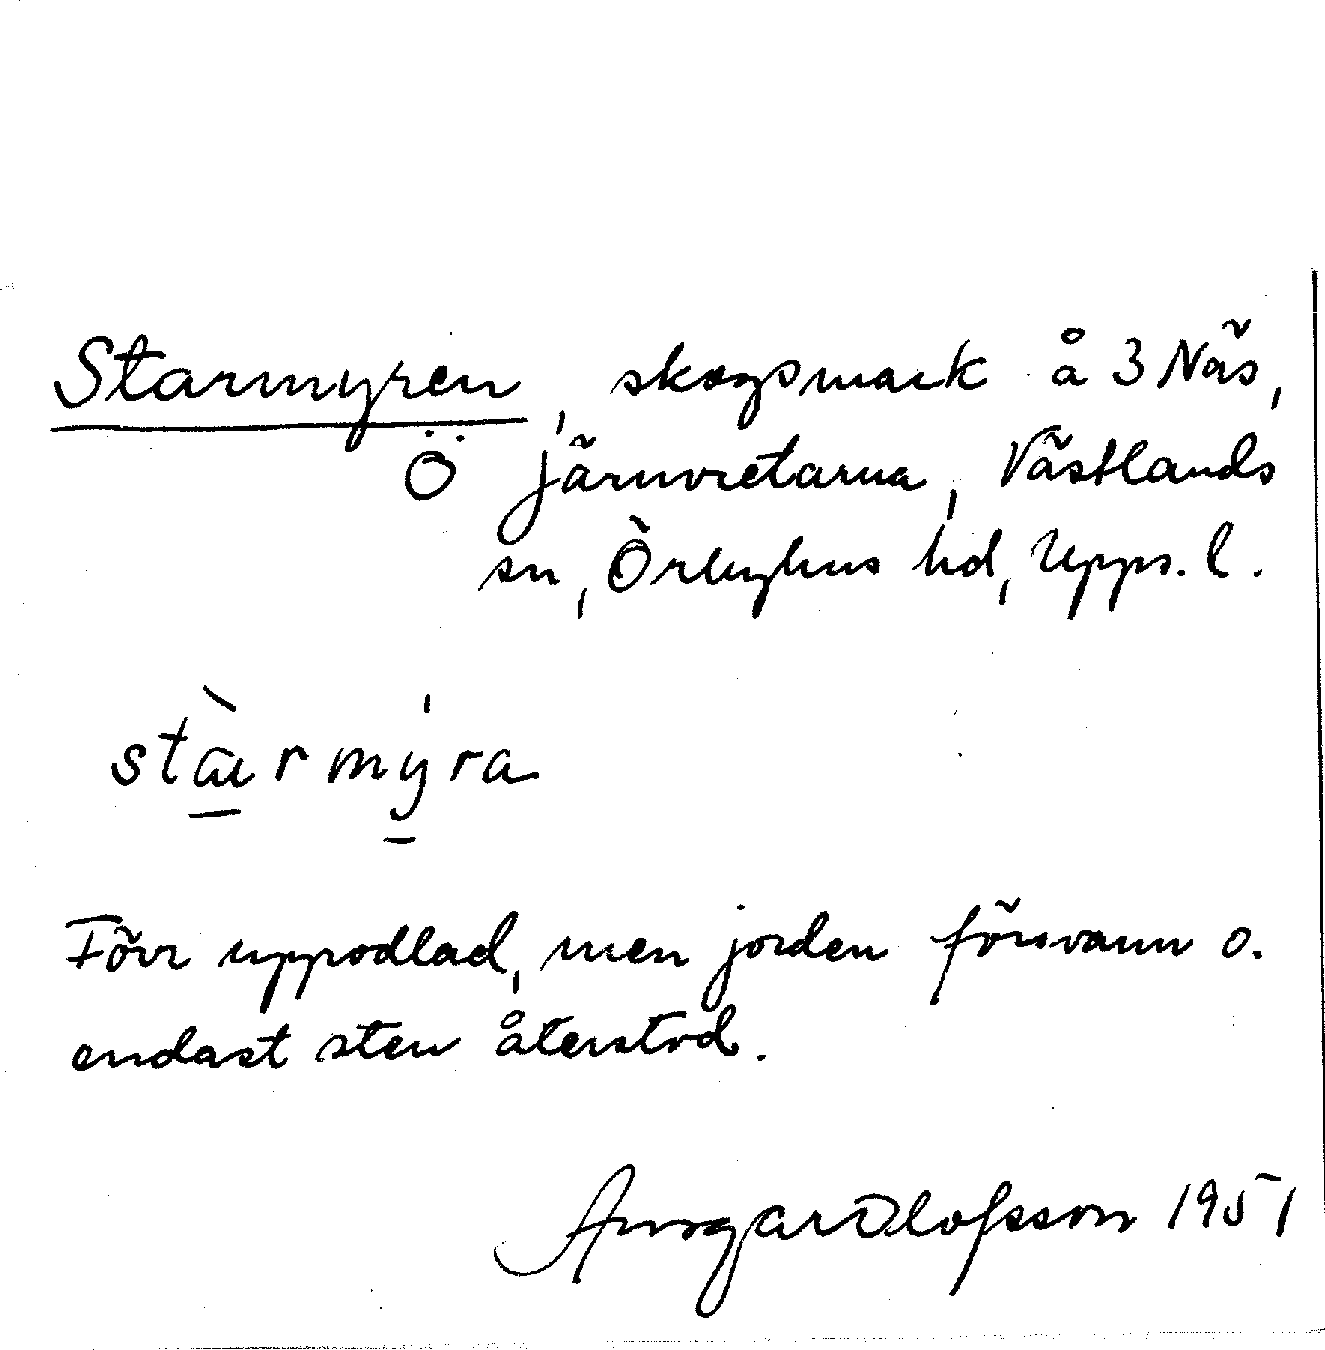 Starmyren, skogsmark å 3 Näs,
Ö Järnvretarna, Västlands
sn, Örbyhus hd, Upps. l.
stæ̀rmy̍ra
Förr uppodlad, men jorden försvann o.
endast sten återstod.
Ansgar Olofsson 1951